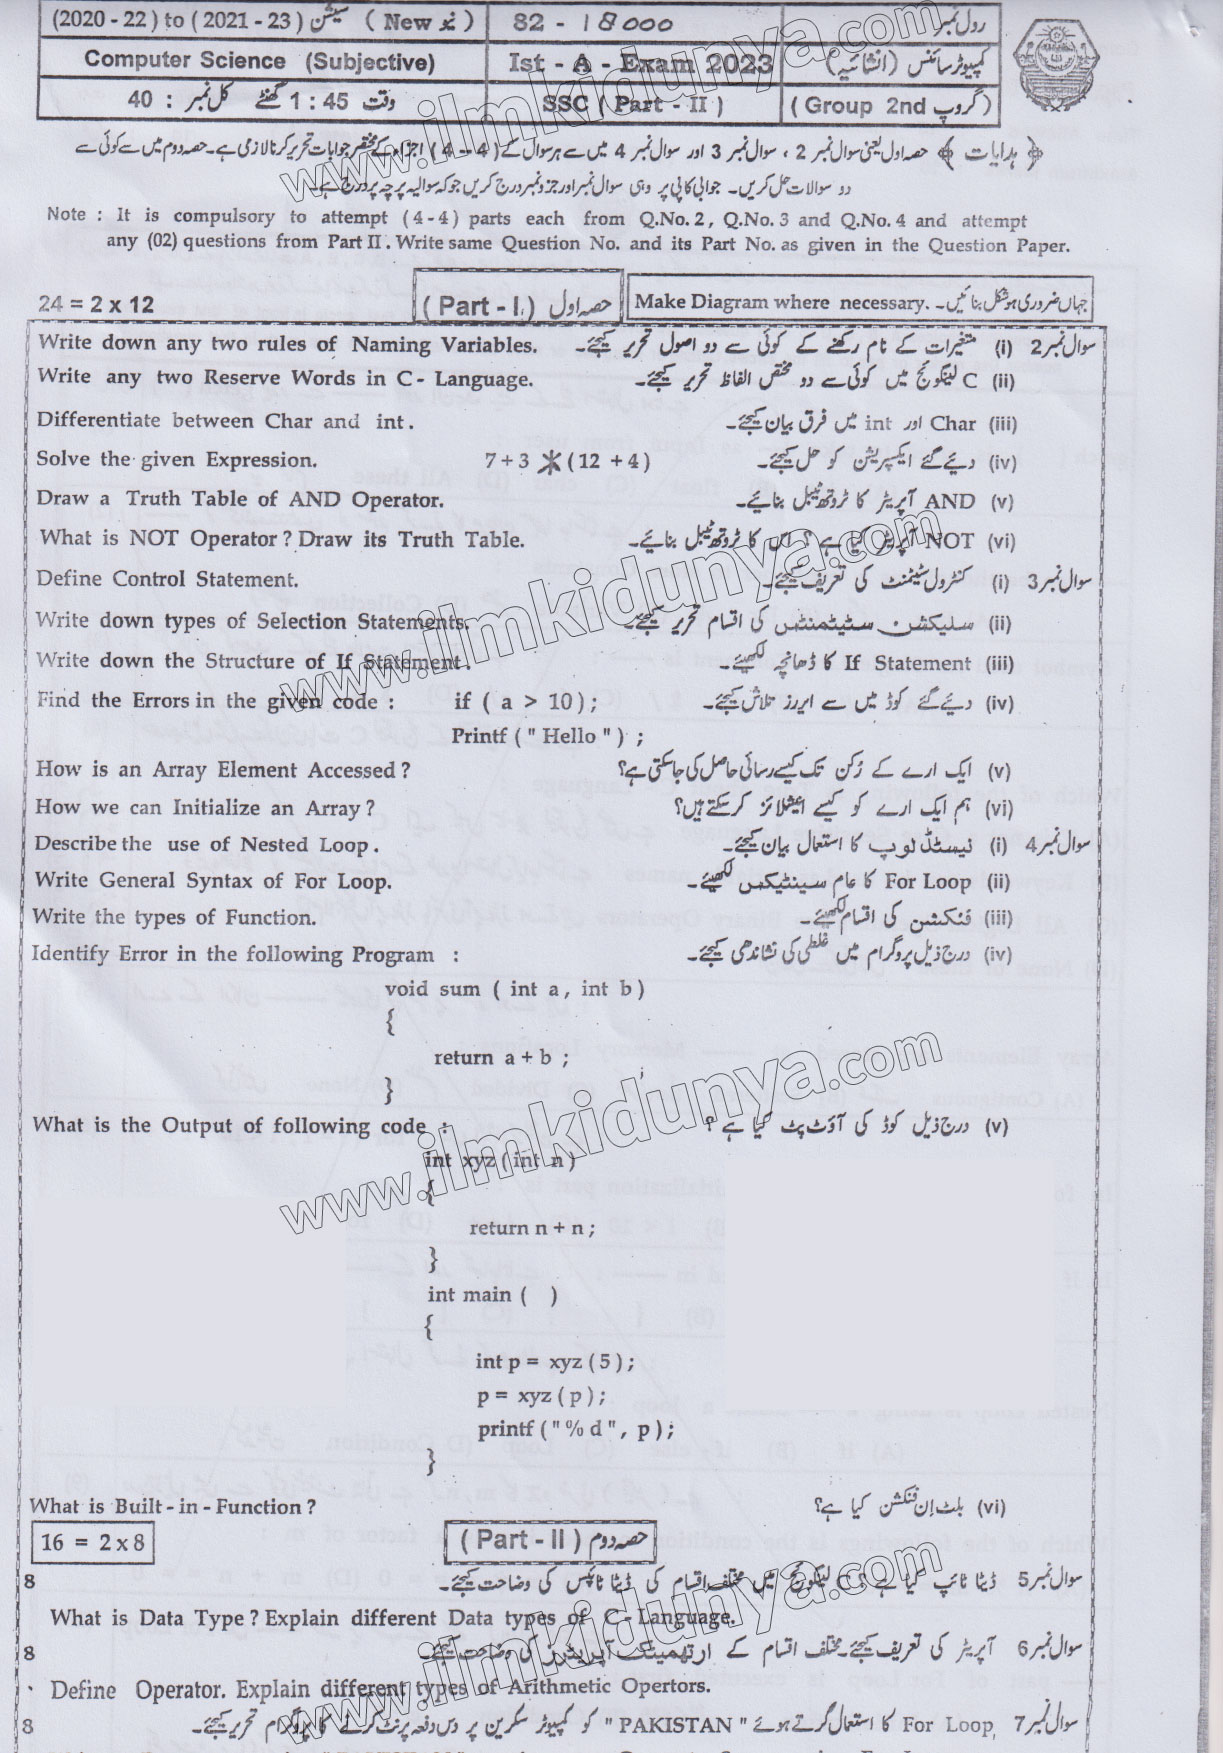 (2020 - 22) to (2021 - 23) سیشن ( New نیو ) 82 - 18000 رول نمبر
Computer Science (Subjective) Ist - A - Exam 2023 کمپیوٹر سائنس (انشائیہ)
وقت 1 : 45 گھنٹے کل نمبر : 40 SSC ( Part - II ) ( Group 2nd گروپ )
﴿ ہدایات ﴾ حصہ اول یعنی سوال نمبر 2 ، سوال نمبر 3 اور سوال نمبر 4 میں سے ہر سوال کے ( 4 - 4 ) اجزاء کے مختصر جوابات تحریر کرنا لازمی ہے۔ حصہ دوم میں سے کوئی سے
دو سوالات حل کریں۔ جوابی کاپی پر وہی سوال نمبر اور جزو نمبر درج کریں جو کہ سوالیہ پرچہ پر درج ہے۔
Note : It is compulsory to attempt (4 - 4) parts each from Q.No. 2, Q.No. 3 and Q.No. 4 and attempt
any (02) questions from Part II . Write same Question No. and its Part No. as given in the Question Paper.
24 = 2 x 12 ( Part - I, ) حصہ اول Make Diagram where necessary. جہاں ضروری ہو شکل بنائیں۔
Write down any two rules of Naming Variables. متغیرات کے نام رکھنے کے کوئی سے دو اصول تحریر کیجئے۔ (i) سوال نمبر 2
Write any two Reserve Words in C - Language. C لینگوئج میں کوئی سے دو مختص الفاظ تحریر کیجئے۔ (ii)
Differentiate between Char and int . Char اور int میں فرق بیان کیجئے۔ (iii)
Solve the given Expression. 7 + 3 * ( 12 + 4 ) دیئے گئے ایکسپریشن کو حل کیجئے۔ (iv)
Draw a Truth Table of AND Operator. AND آپریٹر کا ٹروتھ ٹیبل بنائیے۔ (v)
What is NOT Operator ? Draw its Truth Table. NOT آپریٹر کیا ہے ؟ اس کا ٹروتھ ٹیبل بنائیے۔ (vi)
Define Control Statement. کنٹرول سٹیٹمنٹ کی تعریف کیجئے۔ (i) سوال نمبر 3
Write down types of Selection Statements. سلیکشن سٹیٹمنٹس کی اقسام تحریر کیجئے۔ (ii)
Write down the Structure of If Statement . If Statement کا ڈھانچہ لکھیئے۔ (iii)
Find the Errors in the given code : if ( a > 10 ) ; دیئے گئے کوڈ میں سے ایررز تلاش کیجئے۔ (iv)
Printf ( " Hello " ) ;
How is an Array Element Accessed ? ایک ارے کے رکن تک کیسے رسائی حاصل کی جاسکتی ہے؟ (v)
How we can Initialize an Array ? ہم ایک ارے کو کیسے انیشلائز کر سکتے ہیں؟ (vi)
Describe the use of Nested Loop . نیسٹڈ لوپ کا استعمال بیان کیجئے۔ (i) سوال نمبر 4
Write General Syntax of For Loop. For Loop کا عام سینٹیکس لکھیئے۔ (ii)
Write the types of Function. فنکشن کی اقسام لکھیئے۔ (iii)
Identify Error in the following Program : درج ذیل پروگرام میں غلطی کی نشاندھی کیجئے۔ (iv)
void sum ( int a , int b )
{
return a + b ;
}
What is the Output of following code : درج ذیل کوڈ کی آؤٹ پٹ کیا ہے ؟ (v)
int xyz ( int n )
{
return n + n ;
}
int main ( )
{
int p = xyz ( 5 ) ;
p = xyz ( p ) ;
printf ( " % d " , p ) ;
}
What is Built - in - Function ? بلٹ اِن فنکشن کیا ہے؟ (vi)
16 = 2 x 8 ( Part - II ) حصہ دوم
8 ڈیٹا ٹائپ کیا ہے ؟ C لینگوئج میں مختلف اقسام کی ڈیٹا ٹائپس کی وضاحت کیجئے۔ سوال نمبر 5
What is Data Type ? Explain different Data types of C - Language.
8 آپریٹر کی تعریف کیجئے۔ مختلف اقسام کے ارتھمیٹک آپریٹرز کی وضاحت کیجئے۔ سوال نمبر 6
Define Operator. Explain different types of Arithmetic Opertors.
8 For Loop کا استعمال کرتے ہوئے " PAKISTAN " کو کمپیوٹر سکرین پر دس دفعہ پرنٹ کرنے کا پروگرام تحریر کیجئے۔ سوال نمبر 7
www.ilmkidunya.com
www.ilmkidunya.com
www.ilmkidunya.com
www.ilmkidunya.com